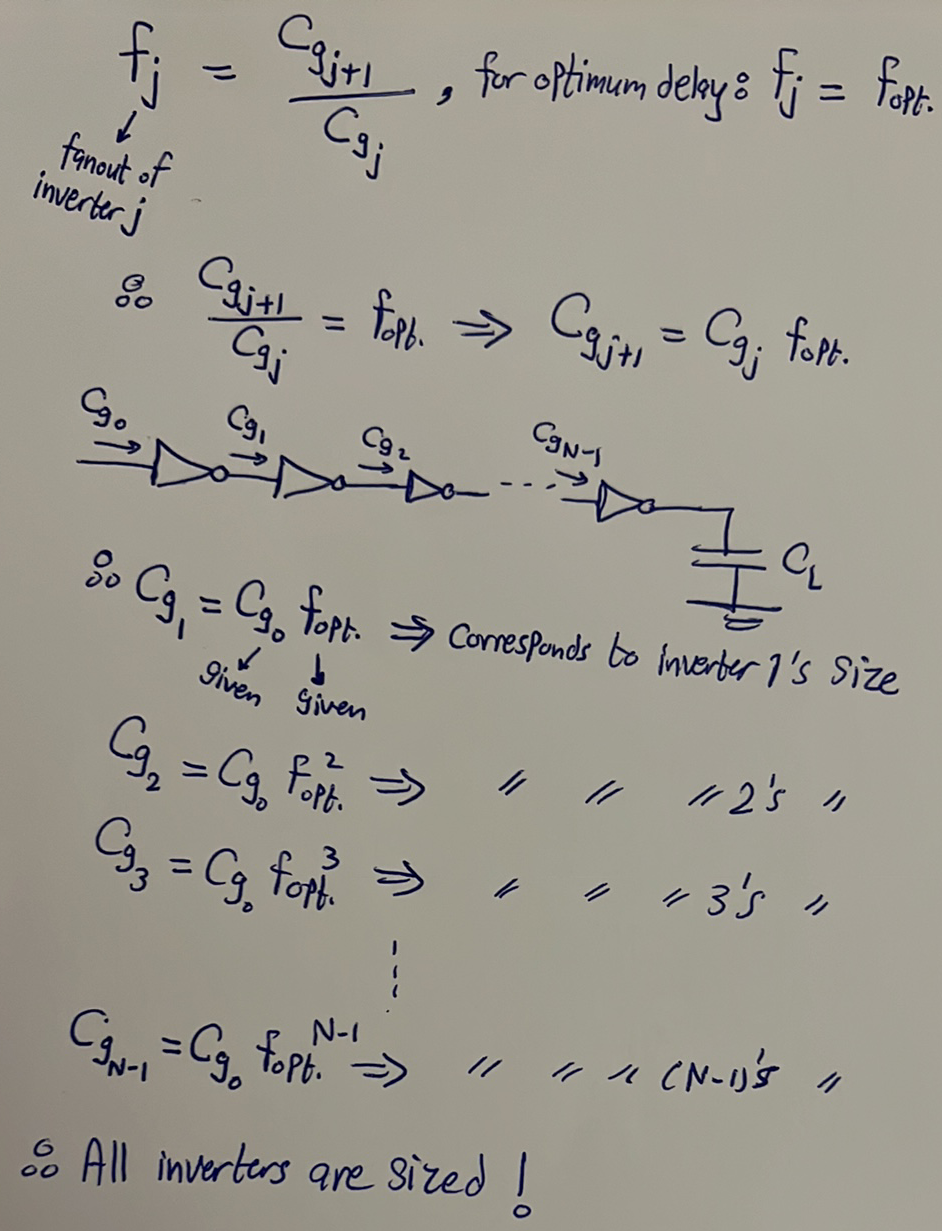 fj = Cgj+1 / Cgj , for optimum delay: fj = fopt.
fanout of
inverter j
∴ Cgj+1 / Cgj = fopt. ⇒ Cgj+1 = Cgj fopt.
Cg0 Cg1 Cg2 CgN-1
CL
∴ Cg1 = Cg0 fopt. ⇒ Corresponds to inverter 1's size
given given
Cg2 = Cg0 fopt.^2 ⇒ " " " 2's "
Cg3 = Cg0 fopt.^3 ⇒ " " " 3's "
CgN-1 = Cg0 fopt.^N-1 ⇒ " " " (N-1)'s "
∴ All inverters are sized !